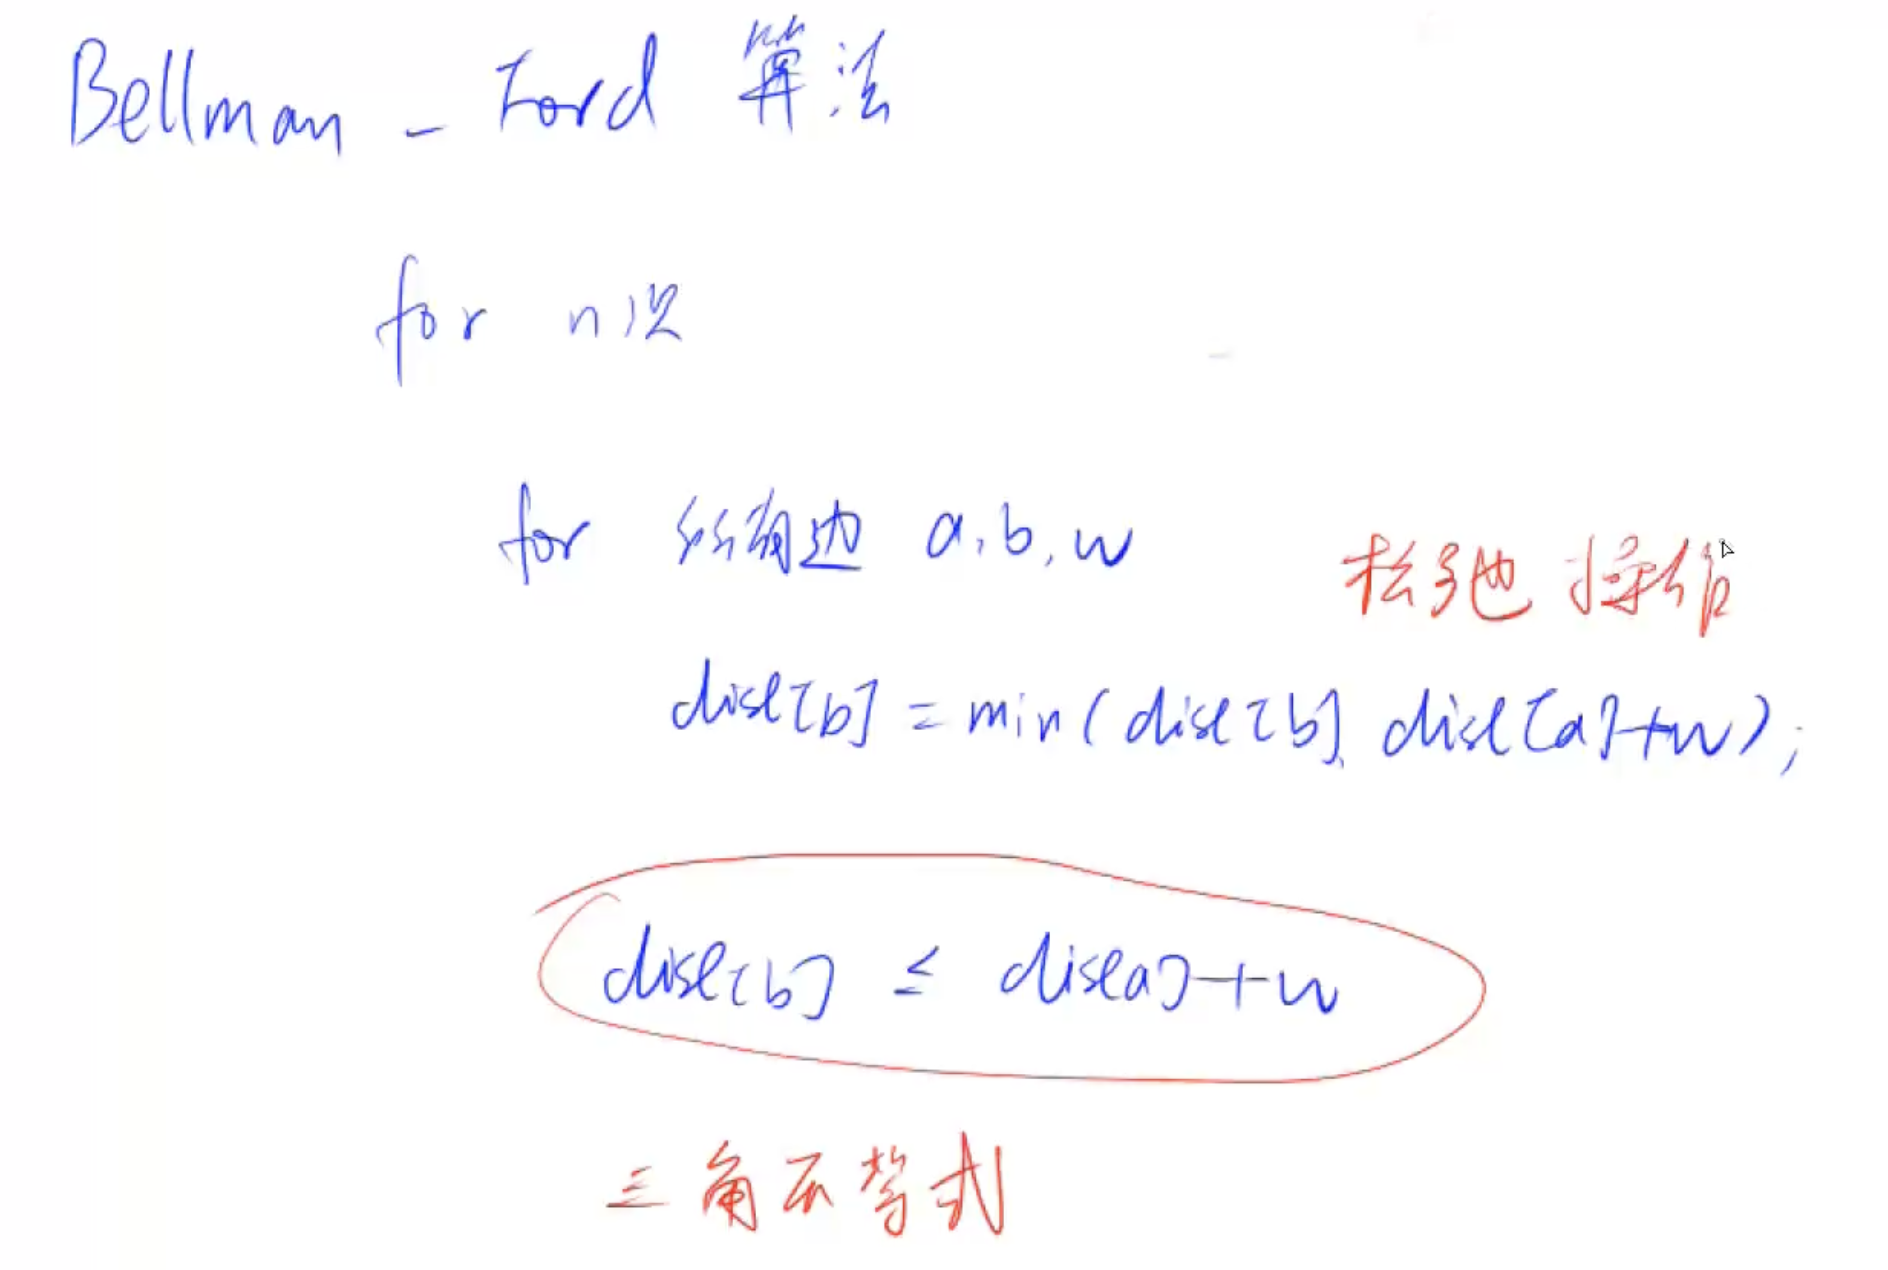 Bellman - Ford 算法
for n次
for 所有边 a,b,w
松弛 操作
dist[b] = min(dist[b], dist[a]+w);
dist[b] ≤ dist[a]+w
三角不等式